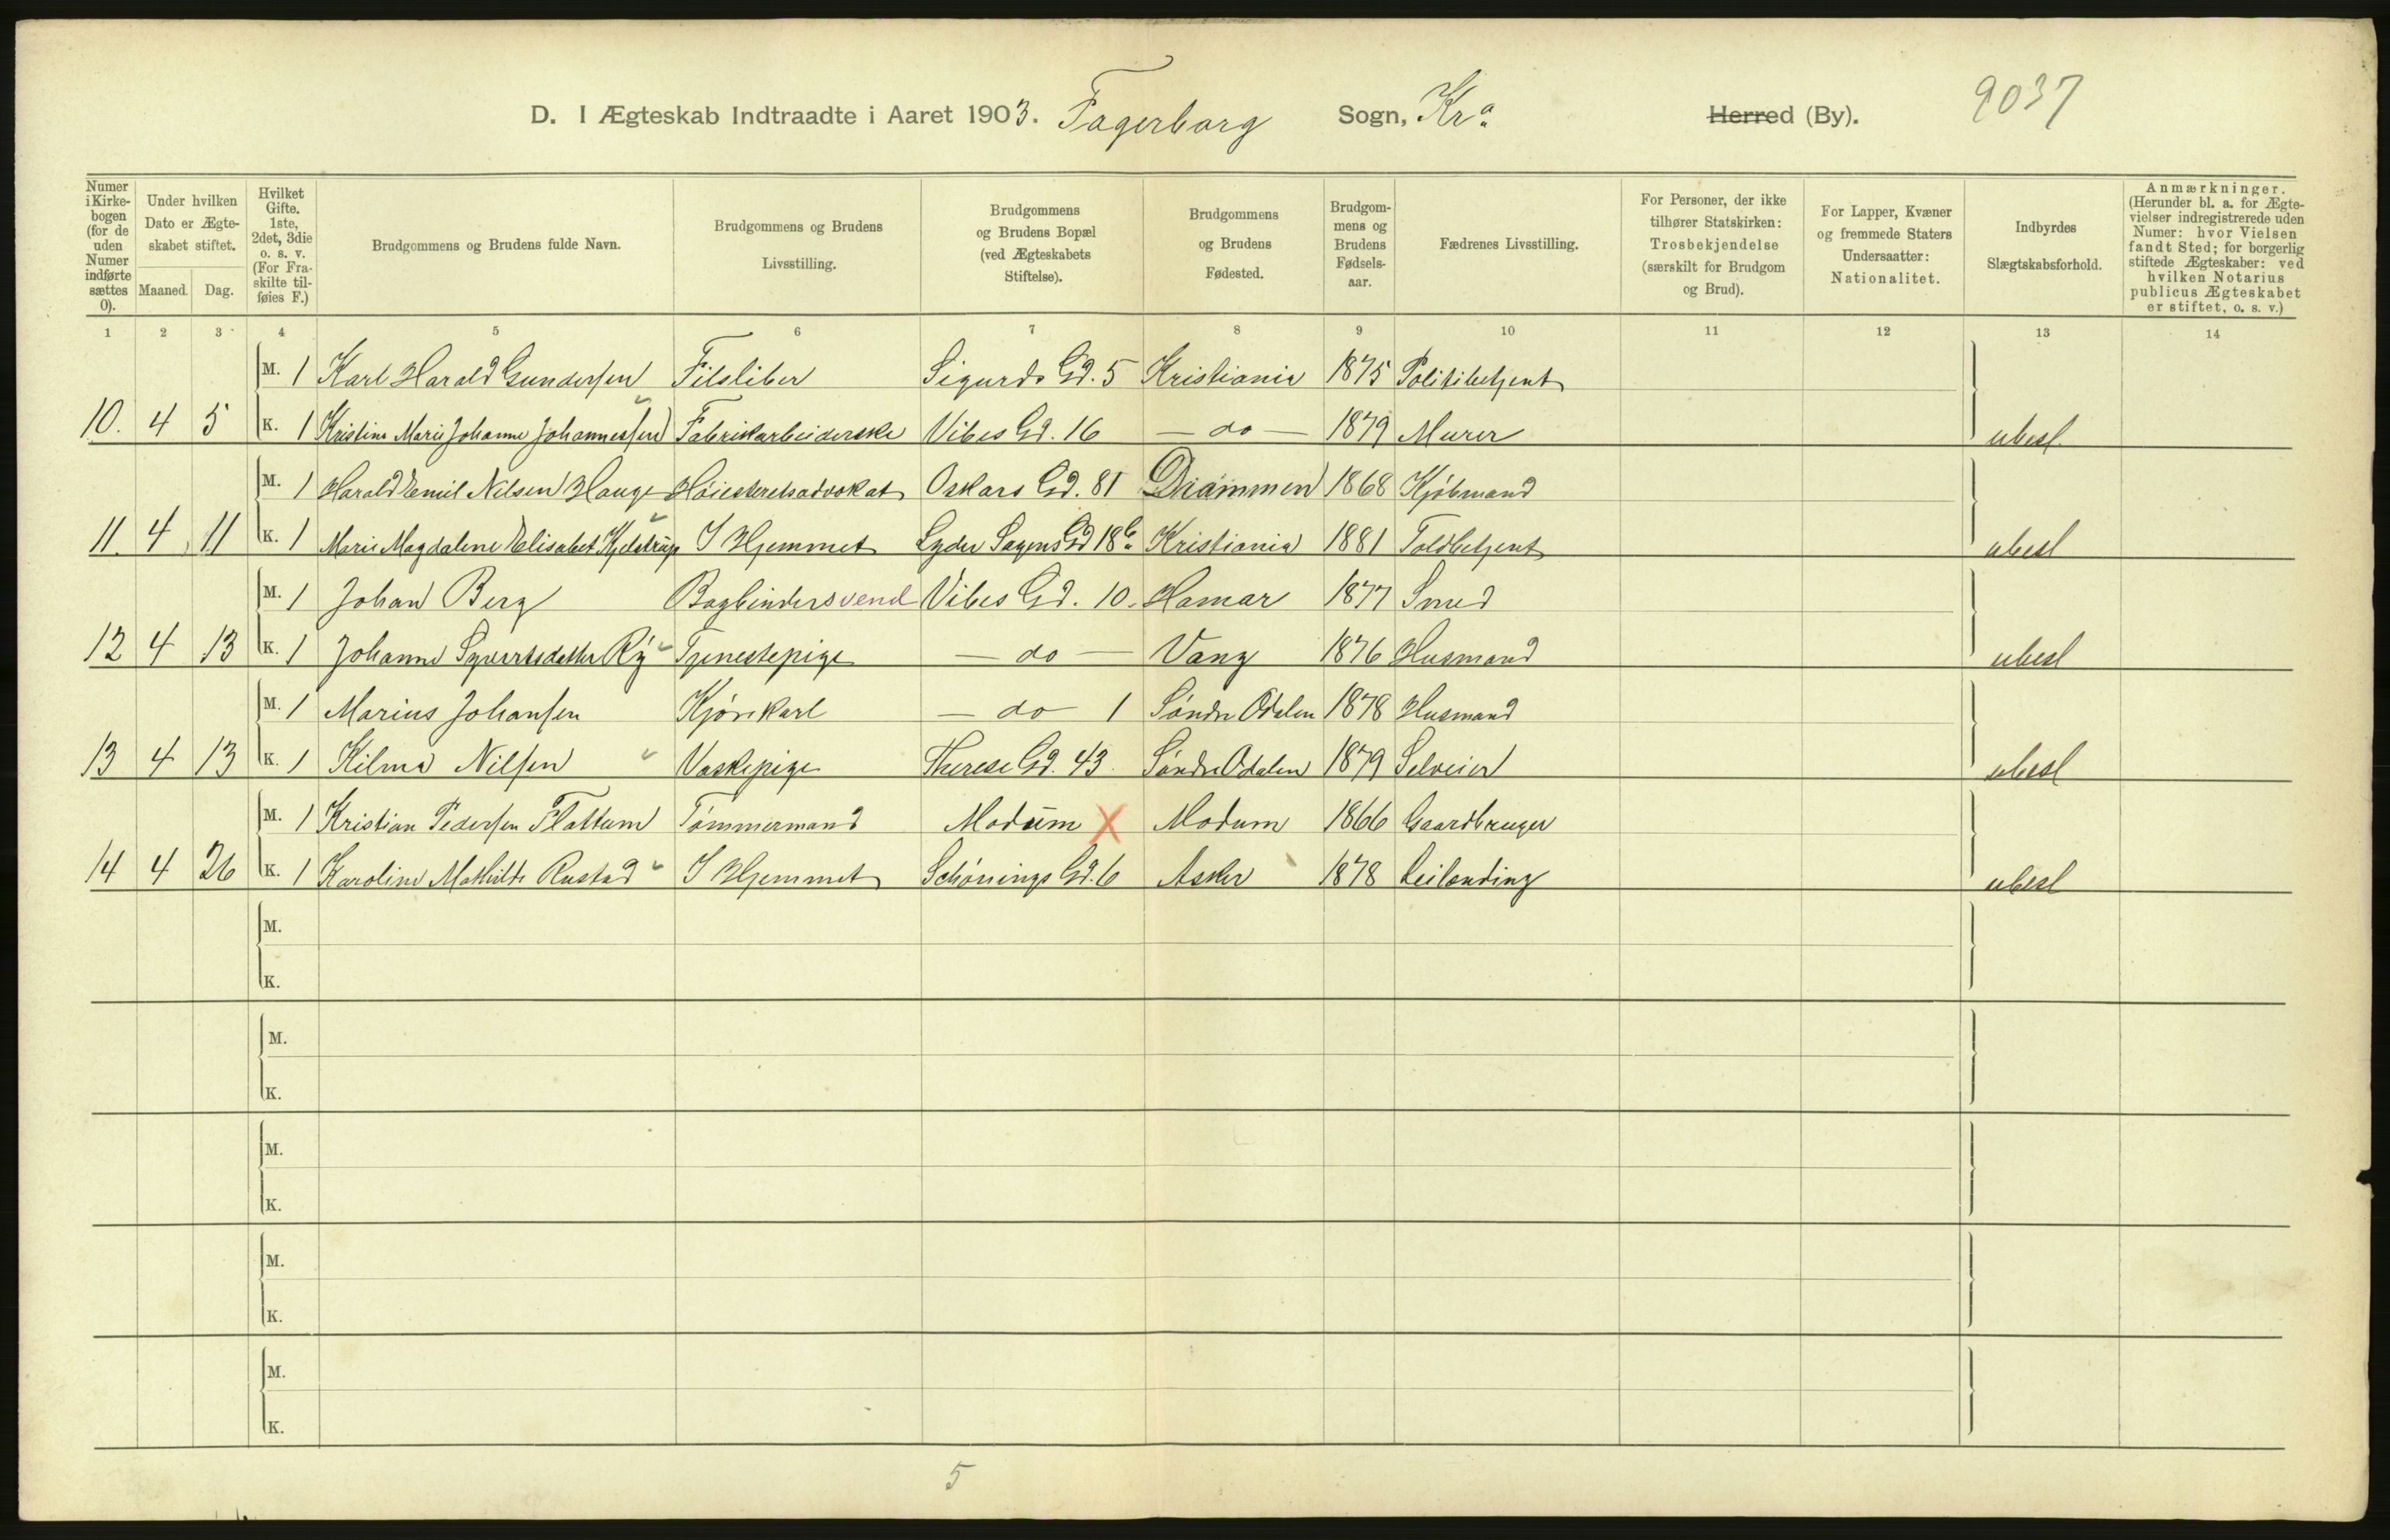 9037
D. I Ægteskab Indtraadte i Aaret 1903. Fagerborg Sogn, Kra. Herred (By).
Numer i Kirkebogen (for de uden Numer indførte sættes 0).
Under hvilken Dato er Ægteskabet stiftet.
Maaned. Dag.
Hvilket Gifte. 1ste, 2det, 3die o. s. v. (For Fraskilte tilføies F.)
Brudgommens og Brudens fulde Navn.
Brudgommens og Brudens Livsstilling.
Brudgommens og Brudens Bopæl (ved Ægteskabets Stiftelse).
Brudgommens og Brudens Fødested.
Brudgommens og Brudens Fødselsaar.
Fædrenes Livsstilling.
For Personer, der ikke tilhører Statskirken: Trosbekjendelse (særskilt for Brudgom og Brud).
For Lapper, Kvæner og fremmede Staters Undersaatter: Nationalitet.
Indbyrdes Slægtskabsforhold.
Anmærkninger. (Herunder bl. a. for Ægtevielser indregistrerede uden Numer: hvor Vielsen fandt Sted; for borgerlig stiftede Ægteskaber: ved hvilken Notarius publicus Ægteskabet er stiftet, o. s. v.)
1 2 3 4 5 6 7 8 9 10 11 12 13 14
M. 1 Karl Harald Gundersen Filsliber Sigurds Gd. 5 Kristiania 1875 Politibetjent
10. 4 5 K. 1 Kristine Marie Johanne Johannessen Fabrikarbeiderske Vibes Gd. 16 — do — 1879 Murer ubesl.
M. 1 Harald Emil Nilsen Hauge Høiesteretsadvokat Oskars Gd. 81 Drammen 1868 Kjøbmand
11. 4 11 K. 1 Marie Magdalene Elisabet Kjelstrup I Hjemmet Lyder Sagens Gd 18b. Kristiania 1881 Toldbetjent ubesl
M. 1 Johan Berg Bogbindersvend Vibes Gd. 10. Hamar 1877 Smed
12 4 13 K. 1 Johanne Syvertsdatter Ry Tjenestepige — do — Vang 1876 Husmand ubesl
M. 1 Marius Johansen Kjørekarl — do 1 Søndre Odalen 1878 Husmand
13 4 13 K. 1 Hilma Nilsen Vaskepige Therese Gd. 43 Søndre Odalen 1879 Selveier ubesl
M. 1 Kristian Pedersen Flattum Tømmermand Modum X Modum 1866 Gaardbruger
14 4 26 K. 1 Karoline Mathilde Rustad I Hjemmet Schønings Gd. 6 Asker 1878 Leilending ubesl
M.
K.
M.
K.
M.
K.
M.
K.
M.
K.
5